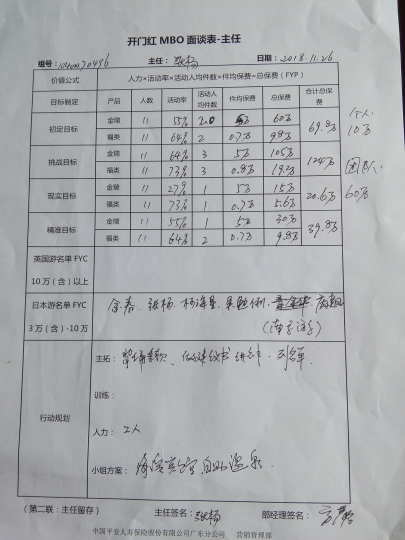 开门红 MBO 面谈表-主任
组号: 主任: 张杨 日期: 2018.11.26
价值公式 人力×活动率×活动人均件数×件均保费=总保费（FYP）
目标制定 产品 人数 活动率 活动人均件数 件均保费 总保费 合计总保费
初定目标 金瑞 11 55% 2.0 5万 60万 69.8万 个人 10万
福类 11 64% 2 0.7万 9.8万
挑战目标 金瑞 11 64% 3 5万 105万 124万 团队
福类 11 73% 3 0.8万 19.2万
现实目标 金瑞 11 27% 1 5万 15万 20.6万 60万
福类 11 73% 1 0.7万 5.6万
精准目标 金瑞 11 55% 1 5万 30万 39.8万
福类 11 64% 2 0.7万 9.8万
英国游名单 FYC
10 万（含）以上
日本游名单 FYC 余春、张杨、
3 万（含）-10 万
行动规划
主拓:
训练:
人力: 2人
小组方案:
（第二联：主任留存） 主任签名: 张杨 部经理签名:
中国平安人寿保险股份有限公司广东分公司 营销管理部